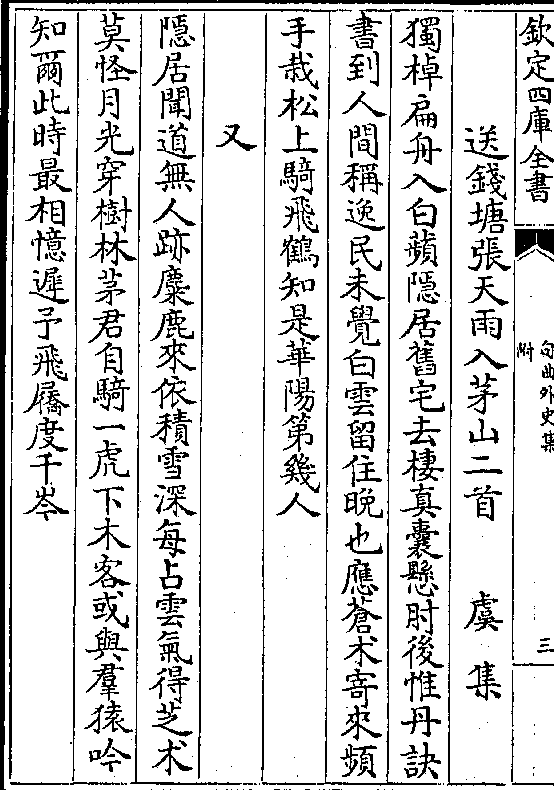 欽定四庫全書
句曲外史集
附
三
送錢塘張天雨入茅山二首　虞集
獨棹扁舟入白蘋隱居舊宅去棲真囊懸肘後惟丹訣
書到人間稱逸民未覺白雲留住晚也應蒼术寄來頻
手栽松上騎飛鶴知是華陽第幾人
又
隱居聞道無人跡麋鹿來依積雪深每占雲氣得芝术
莫怪月光穿樹林茅君自騎一虎下木客或與羣猿吟
知爾此時最相憶遲予飛屩度千岑